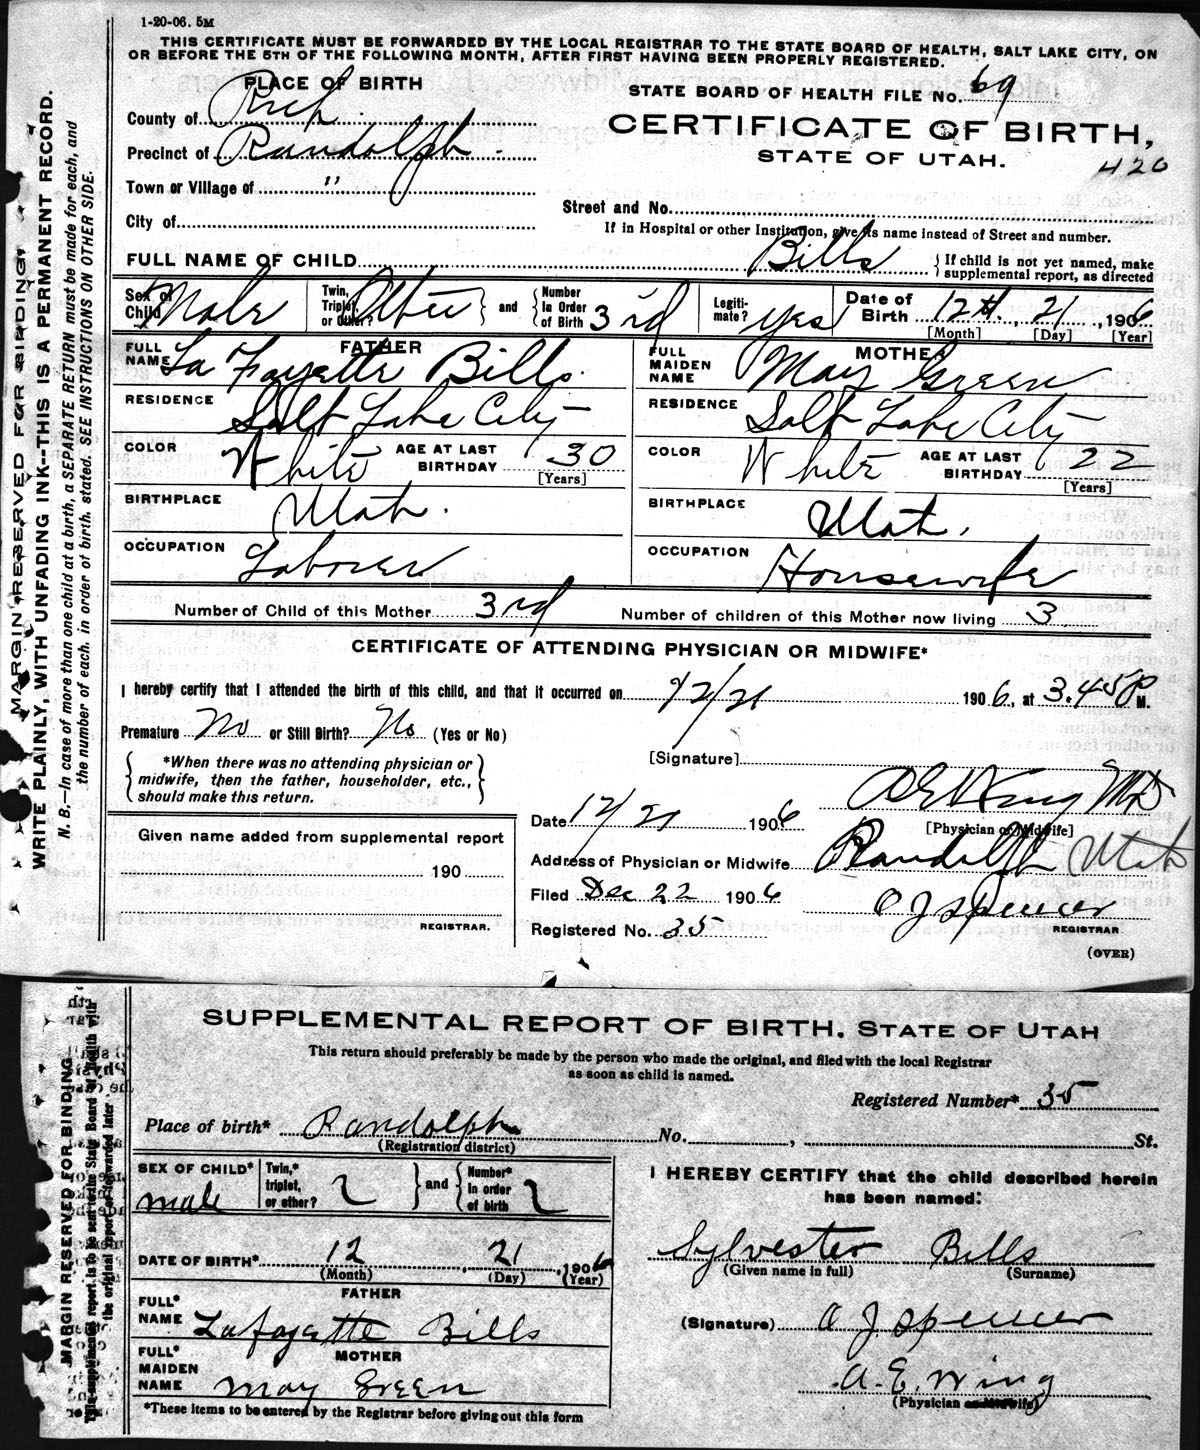 1-20-06. 5M
THIS CERTIFICATE MUST BE FORWARDED BY THE LOCAL REGISTRAR TO THE STATE BOARD OF HEALTH, SALT LAKE CITY, ON
OR BEFORE THE 5TH OF THE FOLLOWING MONTH, AFTER FIRST HAVING BEEN PROPERLY REGISTERED.
MARGIN RESERVED FOR BINDING.
WRITE PLAINLY, WITH UNFADING INK--THIS IS A PERMANENT RECORD.
N. B.—In case of more than one child at a birth, a SEPARATE RETURN must be made for each, and
the number of each, in order of birth, stated. SEE INSTRUCTIONS ON OTHER SIDE.
PLACE OF BIRTH
County of Rich
Precinct of Randolph.
Town or Village of "
City of
STATE BOARD OF HEALTH FILE No. 69
CERTIFICATE OF BIRTH,
STATE OF UTAH.
420
Street and No.
If in Hospital or other Institution, give its name instead of Street and number.
FULL NAME OF CHILD Bills { If child is not yet named, make
supplemental report, as directed
Sex of Child Male Twin, Triplet, or Other? Other } and { Number in Order of Birth 3rd Legiti-mate? yes Date of Birth 12th, 21, 1906
[Month] [Day] [Year]
FATHER
FULL NAME La Fayette Bills.
RESIDENCE Salt Lake City
COLOR White AGE AT LAST BIRTHDAY 30
[Years]
BIRTHPLACE Utah.
OCCUPATION Laborer
MOTHER
FULL MAIDEN NAME May Green
RESIDENCE Salt Lake City
COLOR White AGE AT LAST BIRTHDAY 22
[Years]
BIRTHPLACE Utah.
OCCUPATION Housewife
Number of Child of this Mother 3rd Number of children of this Mother now living 3
CERTIFICATE OF ATTENDING PHYSICIAN OR MIDWIFE*
I hereby certify that I attended the birth of this child, and that it occurred on 12/21 1906, at 3.45 P M.
Premature No or Still Birth? No (Yes or No)
{ *When there was no attending physician or
midwife, then the father, householder, etc.,
should make this return. }
[Signature]
A E Wing MD
[Physician or Midwife]
Date 12/21 1906
Address of Physician or Midwife Randolph Utah
Filed Dec 22 1906 O J Spencer
REGISTRAR
Registered No. 35
(OVER)
Given name added from supplemental report
190
REGISTRAR.
SUPPLEMENTAL REPORT OF BIRTH. STATE OF UTAH
This return should preferably be made by the person who made the original, and filed with the local Registrar
as soon as child is named.
MARGIN RESERVED FOR BINDING
This supplemental report is to be sent to the State Board of Health with
the original report or forwarded later
Registered Number* 35
Place of birth* Randolph No. , St.
(Registration district)
SEX OF CHILD* male Twin,* triplet, or other? } and { Number* in order of birth
DATE OF BIRTH* 12, 21, 1906
(Month) (Day) (Year)
FATHER
FULL* NAME Lafayette Bills
MOTHER
FULL* MAIDEN NAME May Green
*These items to be entered by the Registrar before giving out this form
I HEREBY CERTIFY that the child described herein
has been named:
Sylvester Bills
(Given name in full) (Surname)
(Signature) O J Spencer
A. E. Wing
(Physician or Midwife)